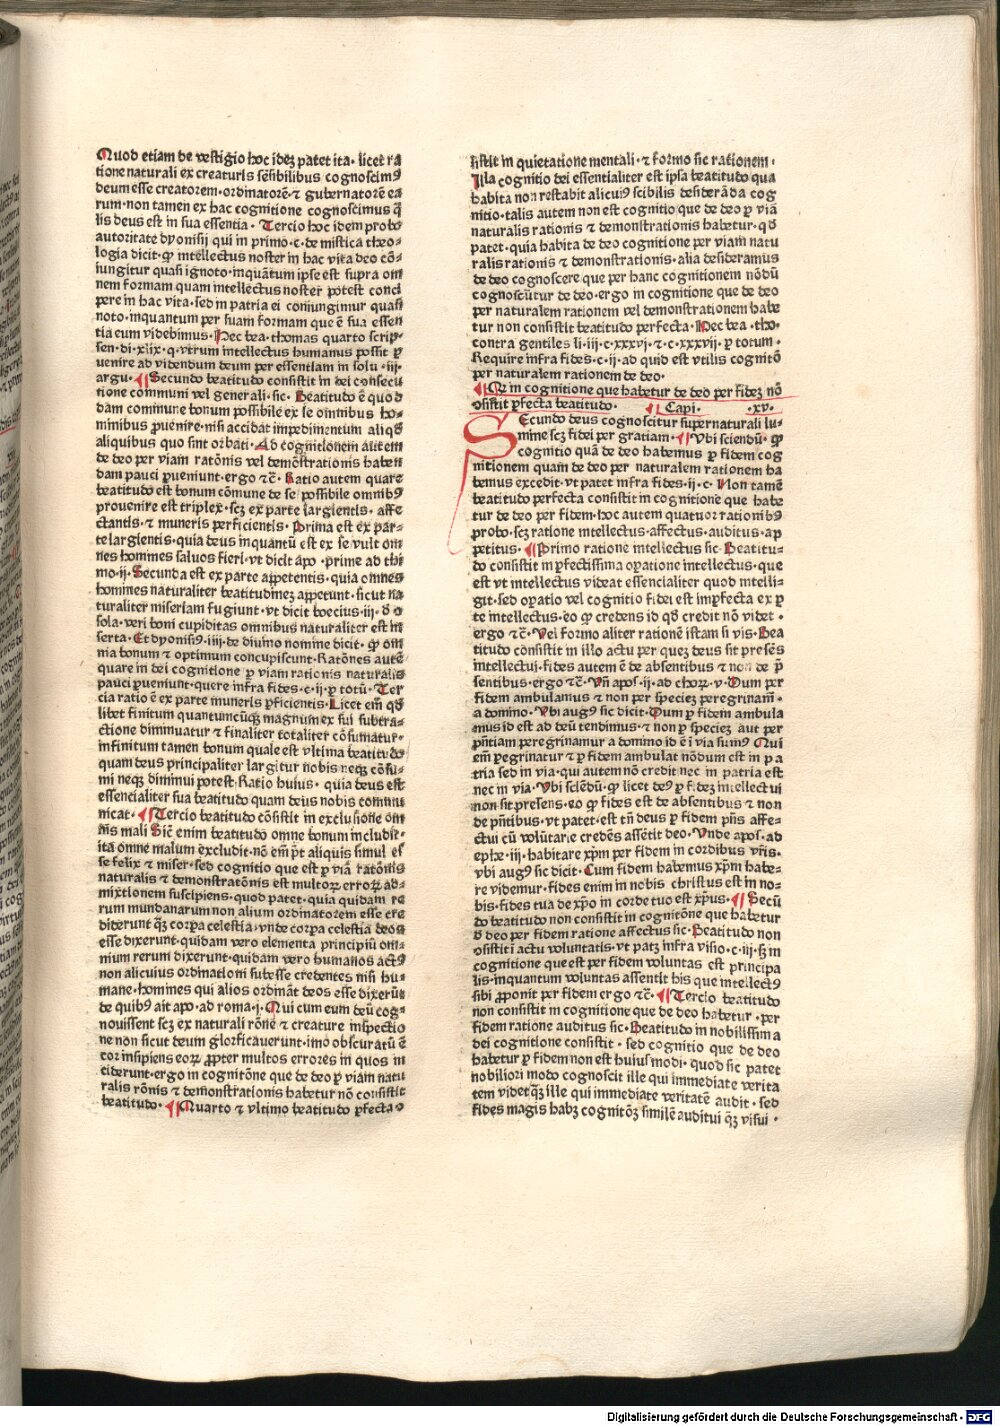 Quod etiam de vestigio hoc idez patet ita· licet ra
tione naturali ex creaturis sēsibilibus cognoscimꝰ
deum esse creatorem·ordinatorē·⁊ gubernatorē ea
rum·non tamen ex hac cognitione cognoscimus q̄
lis deus est in sua essentia· Tercio hoc idem probo
autoritate dyonisij qui in primo·c·de mistica theo⸗
logia dicit·ꝙ intellectus noster in hac vita deo cō⸗
iungitur quasi ignoto·inquātum ipse est supra om
nem formam quam intellectus noster potest conci
pere in hac vita·sed in patria ei coniungimur quasi
noto·inquantum per suam formam que ē sua essen
tia eum videbimus·Hec bea·thomas quarto scrip⸗
sen·di·xlix·q·vtrum intellectus humanus possit ꝑ
uenire ad videndum deum per essentiam in solu·iij·
argu· ¶Secundo beatitudo consistit in dei consecu
tione communi vel generali·sic· Beatitudo ē quod
dam commune bonum possibile ex se omnibus ho⸗
minibus ꝓuenire·nisi accidat impedimentum aliqd̄
aliquibus quo sint orbati· Ad cognitionem autem
de deo per viam ratōnis vel demōstrationis haben
dam pauci ꝑueniunt·ergo ⁊c̄· Ratio autem quare
beatitudo est bonum cōmune de se possibile omnibꝰ
prouenire est triplex·scz ex parte largientis· affe
ctantis·⁊ muneris perficientis· Prima est ex par⸗
te largientis·quia deus inquantū est ex se vult om
nes homines saluos fieri·vt dicit apo·prime ad thi
mo·ij·Secunda est ex parte appetentis·quia omnes
homines naturaliter beatitudinez appetunt·sicut na
turaliter miseriam fugiunt·vt dicit boecius·iij·d̄ cō
sola·veri boni cupiditas omnibus naturaliter est in
serta·Et dyonisiꝰ·iiij·de diuino nomine dicit·ꝙ om
nia bonum ⁊ optimum concupiscunt·Ratōnes autē
quare in dei cognitione ꝑ viam rationis naturalis
pauci ꝑueniunt·quere infra fides·c·ij·ꝑ totū·Ter
cia ratio ē ex parte muneris ꝑficientis·Licet em̄ qd̄
libet finitum quantuncūqz magnum ex sui subtra⸗
ctione diminuatur ⁊ finaliter totaliter cōsumatur·
infinitum tamen bonum quale est vltima beatitudo
quam deus principaliter largitur nobis neqz cōsu⸗
mi neqz diminui potest·Ratio huius· quia deus est
essencialiter sua beatitudo quam deus nobis commu
nicat·¶Tercio beatitudo cōsistit in exclusione om
nis mali Sic̄ enim beatitudo omne bonum includit·
ita omne malum excludit·nō em̄ p̄t aliquis simul es
se felix ⁊ miser·sed cognitio que est ꝑ viā ratōnis
naturalis ⁊ demonstratōnis est multoꝝ erroꝝ ad⸗
mixtionem suscipiens·quod patet·quia quidam re
rum mundanarum non alium ordinatorem esse cre
diderunt qz̄ corꝑa celestia·vnde corꝑa celestia deos
esse dixerunt·quidam vero elementa principiū om⸗
nium rerum dixerunt·quidam vero humanos actꝰ
non alicuius ordinationi subesse credentes nisi hu⸗
mane·homines qui alios ordināt deos esse dixerūt
de quibꝰ ait apo·ad roma·j·Qui cum eum deū cog⸗
nouissent scz ex naturali rōne ⁊ creature inspectio
ne non sicut deum glorficauerunt·imo obscuratū ē
cor insipiens eoꝝ ꝓpter multos errores in quos in
ciderunt·ergo in cognitōne que de deo ꝑ viam natu
ralis rōnis ⁊ demonstrationis habetur nō consistit
beatitudo· ¶Quarto ⁊ vltimo beatitudo ꝑfecta cō
sistit in quietatione mentali·⁊ formo sic rationem·
Illa cognitio dei essentialiter est ipsa beatitudo qua
habita non restabit alicuiꝰ scibilis desiderāda cog
nitio·talis autem non est cognitio que de deo ꝑ viā
naturalis rationis ⁊ demonstrationis habetur·qd̄
patet·quia habita de deo cognitione per viam natu
ralis rationis ⁊ demonstrationis·alia desideramus
de deo cognoscere que per hanc cognitionem nōdū
cognoscūtur de deo·ergo in cognitione que de deo
per naturalem rationem vel demonstrationem habe
tur non consistit beatitudo perfecta·Hec bea·tho·
contra gentiles li·iij·c·xxxvj·⁊ c·xxxvij·ꝑ totum·
Require infra fides·c·ij·ad quid est vtilis cognitō
per naturalem rationem de deo·
¶Qꝙ in cognitione que habetur de deo per fidez nō
ꝯsistit ꝑfecta beatitudo· ¶Capi· ·xv·
Secundo deus cognoscitur supernaturali lu⸗
mine scz fidei per gratiam·¶Vbi sciendū·ꝙ
cognitio quā de deo habemus ꝑ fidem cog
nitionem quam de deo per naturalem rationem ha
bemus excedit·vt patet infra fides·ij·c· Non tamē
beatitudo perfecta consistit in cognitione que habe
tur de deo per fidem·hoc autem quatuor rationibꝰ
probo·scz ratione intellectus·affectus·auditus·ap
petitus· ¶Primo ratione intellectus sic·Beatitu⸗
do consistit in ꝑfectissima oꝑatione intellectus·que
est vt intellectus videat essencialiter quod intelli⸗
git·sed oꝑatio vel cognitio fidei est imꝑfecta ex ꝑ
te intellectus·eo ꝙ credens id qd̄ credit nō videt·
ergo ⁊c̄·Vel formo aliter rationē istam si vis·Bea
titudo consistit in illo actu per quez deus sit presēs
intellectui·fides autem ē de absentibus ⁊ non de p̄
sentibus·ergo ⁊c̄·Vn̄ apos·ij·ad choꝝ·v·Dum per
fidem ambulamus ⁊ non per speciez peregrinam̄·
a domino·Vbi augꝰ sic dicit·Dum ꝑ fidem ambula
mus id est ad deū tendimus·⁊ non ꝑ speciez aut per
p̄ntiam peregrinamur a domino id ē ī via sumꝰ Qui
em̄ ꝑegrinatur ⁊ ꝑ fidem ambulat nōdum est in pa
tria sed in via·qui autem nō credit nec in patria est
nec in via·Vbi sciēdū·ꝙ licet deꝰ ꝑ fidez intellectui
non sit presens·eo ꝙ fides est de absentibus ⁊ non
de p̄ntibus·vt patet·est tn̄ deus ꝑ fidem p̄ns affe⸗
ctui cū volūtarie credēs assētit deo·Vnde apos·ad
ephe·iij·habitare xp̄m per fidem in cordibus vr̄is·
vbi augꝰ sic dicit·Cum fidem habemus xp̄m habe⸗
re videmur·fides enim in nobis christus est in no⸗
bis·fides tua de xp̄o in corde tuo est xp̄us·¶Secū
do beatitudo non consistit in cognitōne que habetur
d̄ deo per fidem ratione affectus sic·Beatitudo non
ꝯsistit ī actu voluntatis·vt patz infra visio·c·iij·sz̄ in
cognitione que est per fidem voluntas est principa
lis·inquantum voluntas assentit his que intellectꝰ
sibi ꝓponit per fidem ergo ⁊c̄·¶Tercio beatitudo
non consistit in cognitione que de deo habetur·per
fidem ratione auditus sic·Beatitudo in nobilissima
dei cognitione consistit· sed cognitio que de deo
habetur ꝑ fidem non est huius modi·quod sic patet
nobiliori modo cognoscit ille qui immediate verita
tem videt qz̄ ille qui immediate veritatē audit·sed
fides magis habz cognitōz similē auditui qz̄ visui·
Digitalisierung gefördert durch die Deutsche Forschungsgemeinschaft - DFG